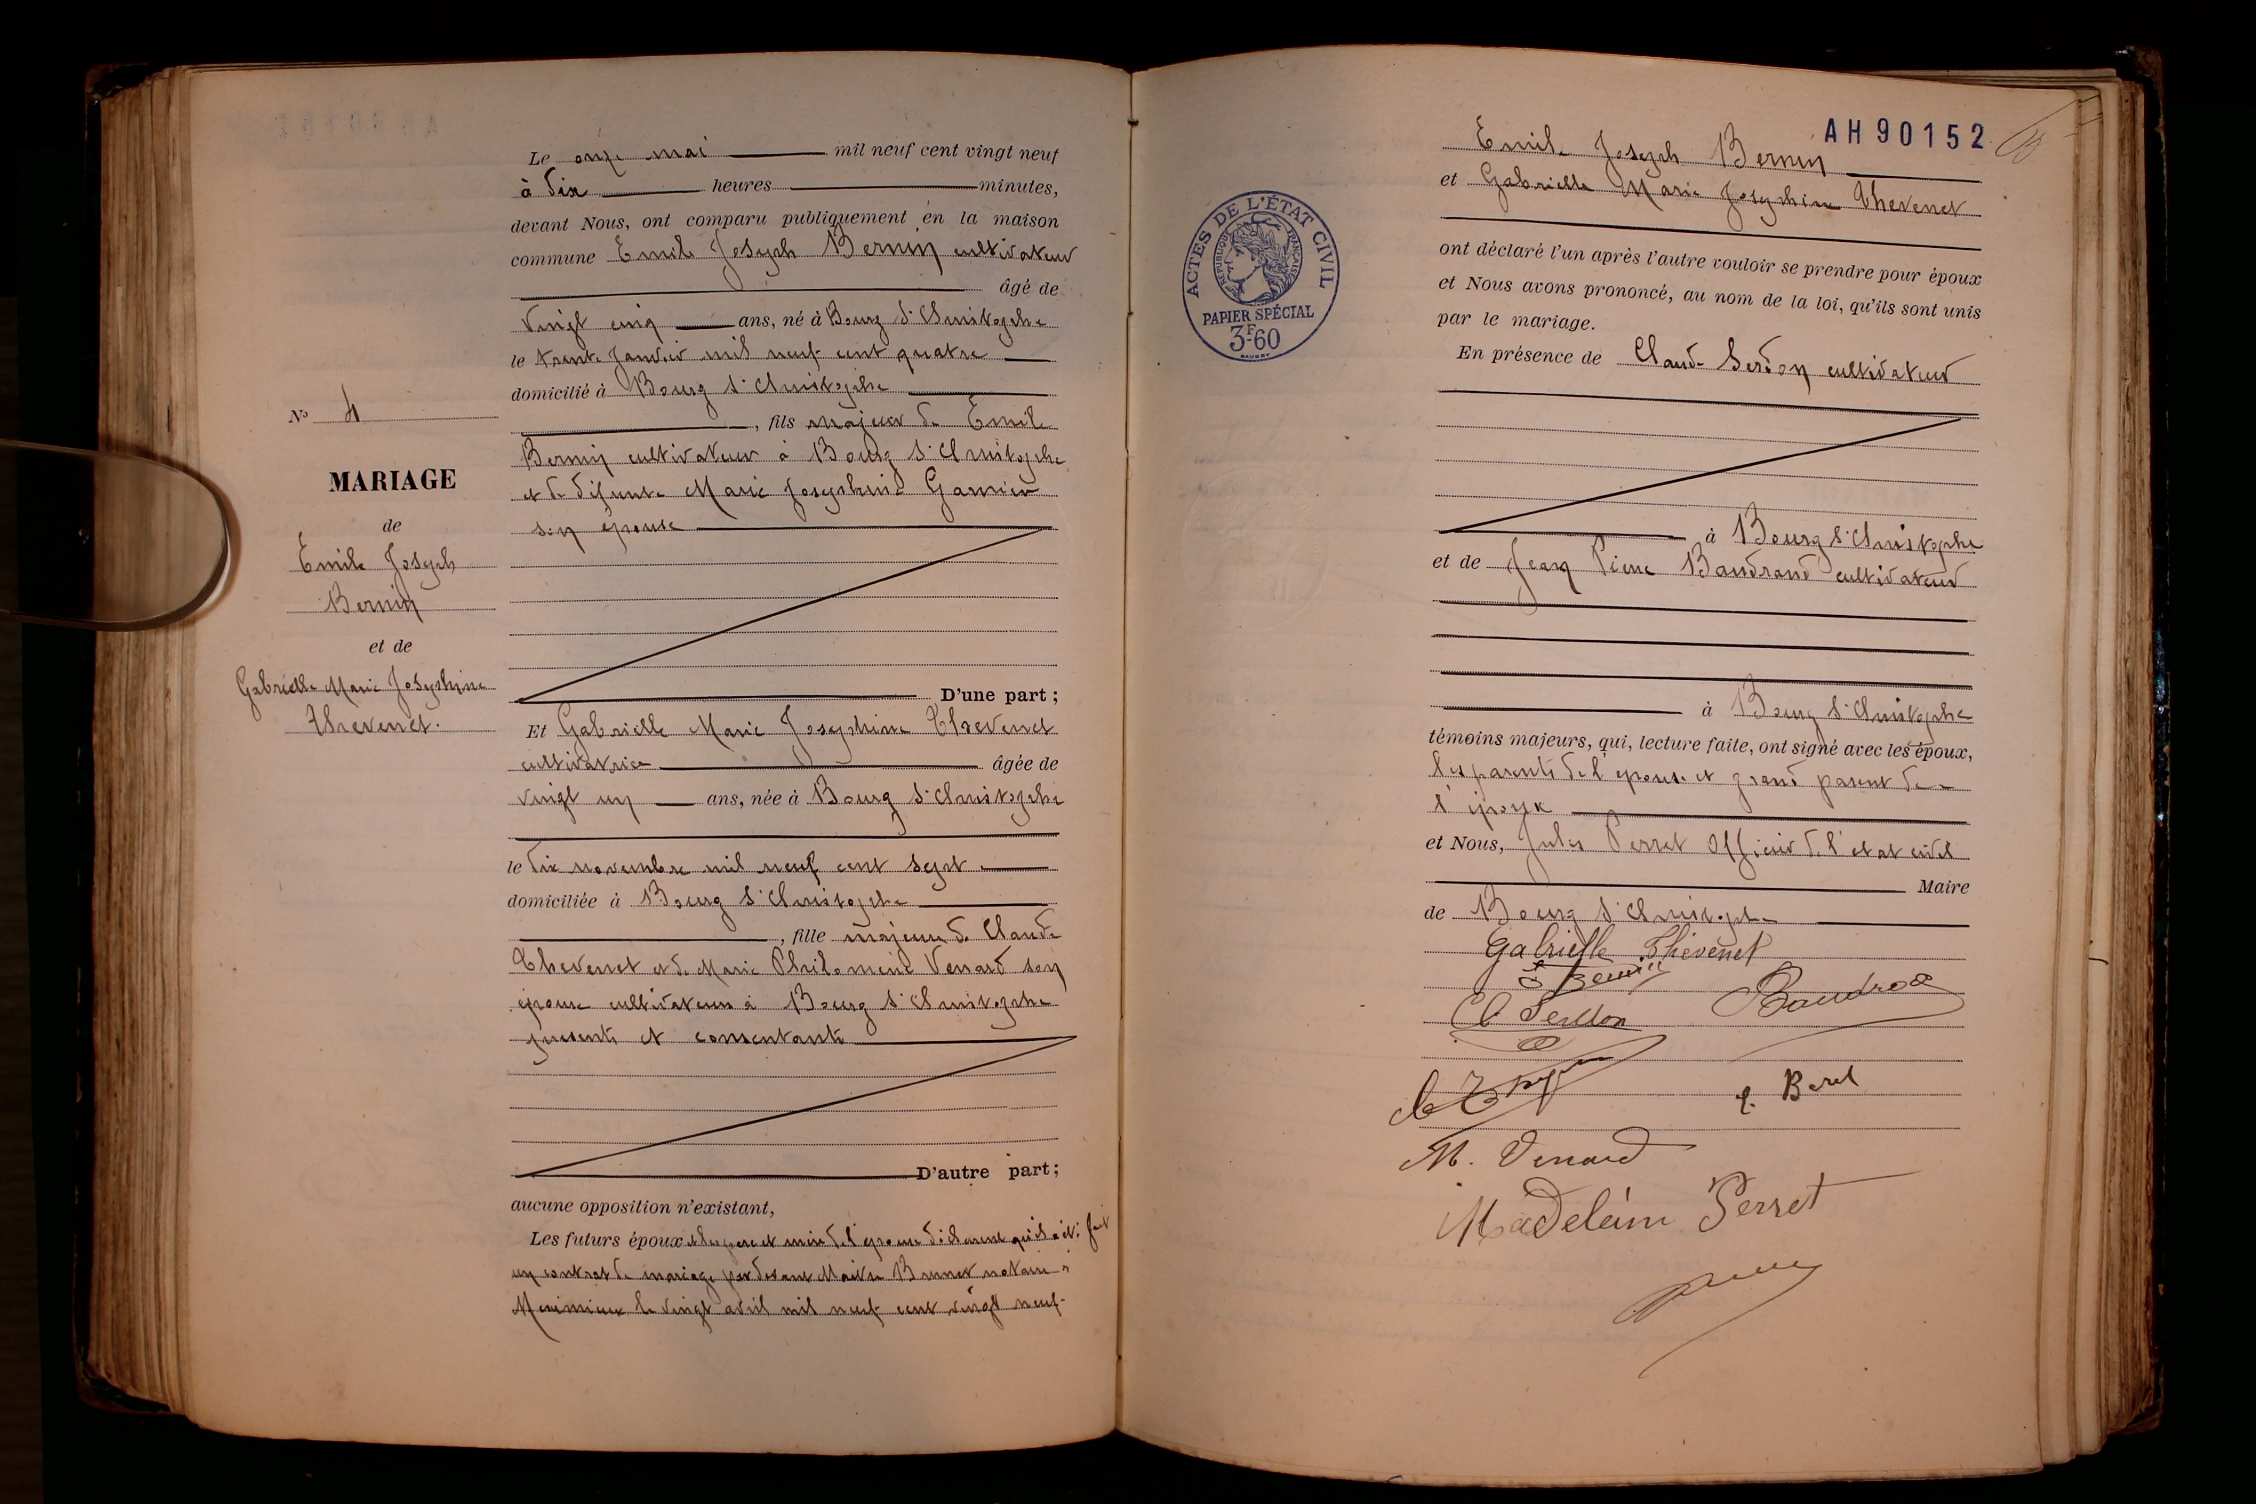 Le onze mai mil neuf cent vingt neuf
à dix heures minutes,
devant Nous, ont comparu publiquement en la maison
commune Emile Joseph Bernin cultivateur
âgé de
vingt cinq ans, né à Bourg St Christophe
le trente Janvier mil neuf cent quatre
domicilié à Bourg St Christophe
, fils majeur de Emile
Bernin cultivateur à Bourg St Christophe
et de défunte Marie Josephine Garnier
son épouse
D'une part ;
Et Gabrielle Marie Josephine Thevenet
cultivatrice âgée de
vingt un ans, née à Bourg St Christophe
le dix novembre mil neuf cent sept
domiciliée à Bourg St Christophe
, fille majeure de Claude
Thevenet et de Marie Philomène Venard son
épouse cultivateurs à Bourg St Christophe
présents et consentants
D'autre part ;
aucune opposition n'existant,
Les futurs époux et les père et mère de l'épouse déclarent qu'il a été fait
un contrat de mariage par devant Maitre Brunet notaire à
Meximieux le vingt avril mil neuf cent vingt neuf
No 4
MARIAGE
de
Emile Joseph
Bernin
et de
Gabrielle Marie Josephine
Thevenet.
AH90152
ACTES DE L'ÉTAT CIVIL
RÉPUBLIQUE FRANÇAISE
PAPIER SPÉCIAL
3F60
Emile Joseph Bernin
et Gabrielle Marie Josephine Thevenet
ont déclaré l'un après l'autre vouloir se prendre pour époux
et Nous avons prononcé, au nom de la loi, qu'ils sont unis
par le mariage.
En présence de Claude Serdon cultivateur
à Bourg St Christophe
et de Jean Pierre Baudrand cultivateur
à Bourg St Christophe
témoins majeurs, qui, lecture faite, ont signé avec les époux,
les parents de l'épouse et grand parent de
l'époux
et Nous, Jules Perret Officier de l'etat civil
Maire
de Bourg St Christophe
Gabrielle Thévenet
E Bernin
Cl Serdon
Baudrand
M. Venard
Madeleine Perret